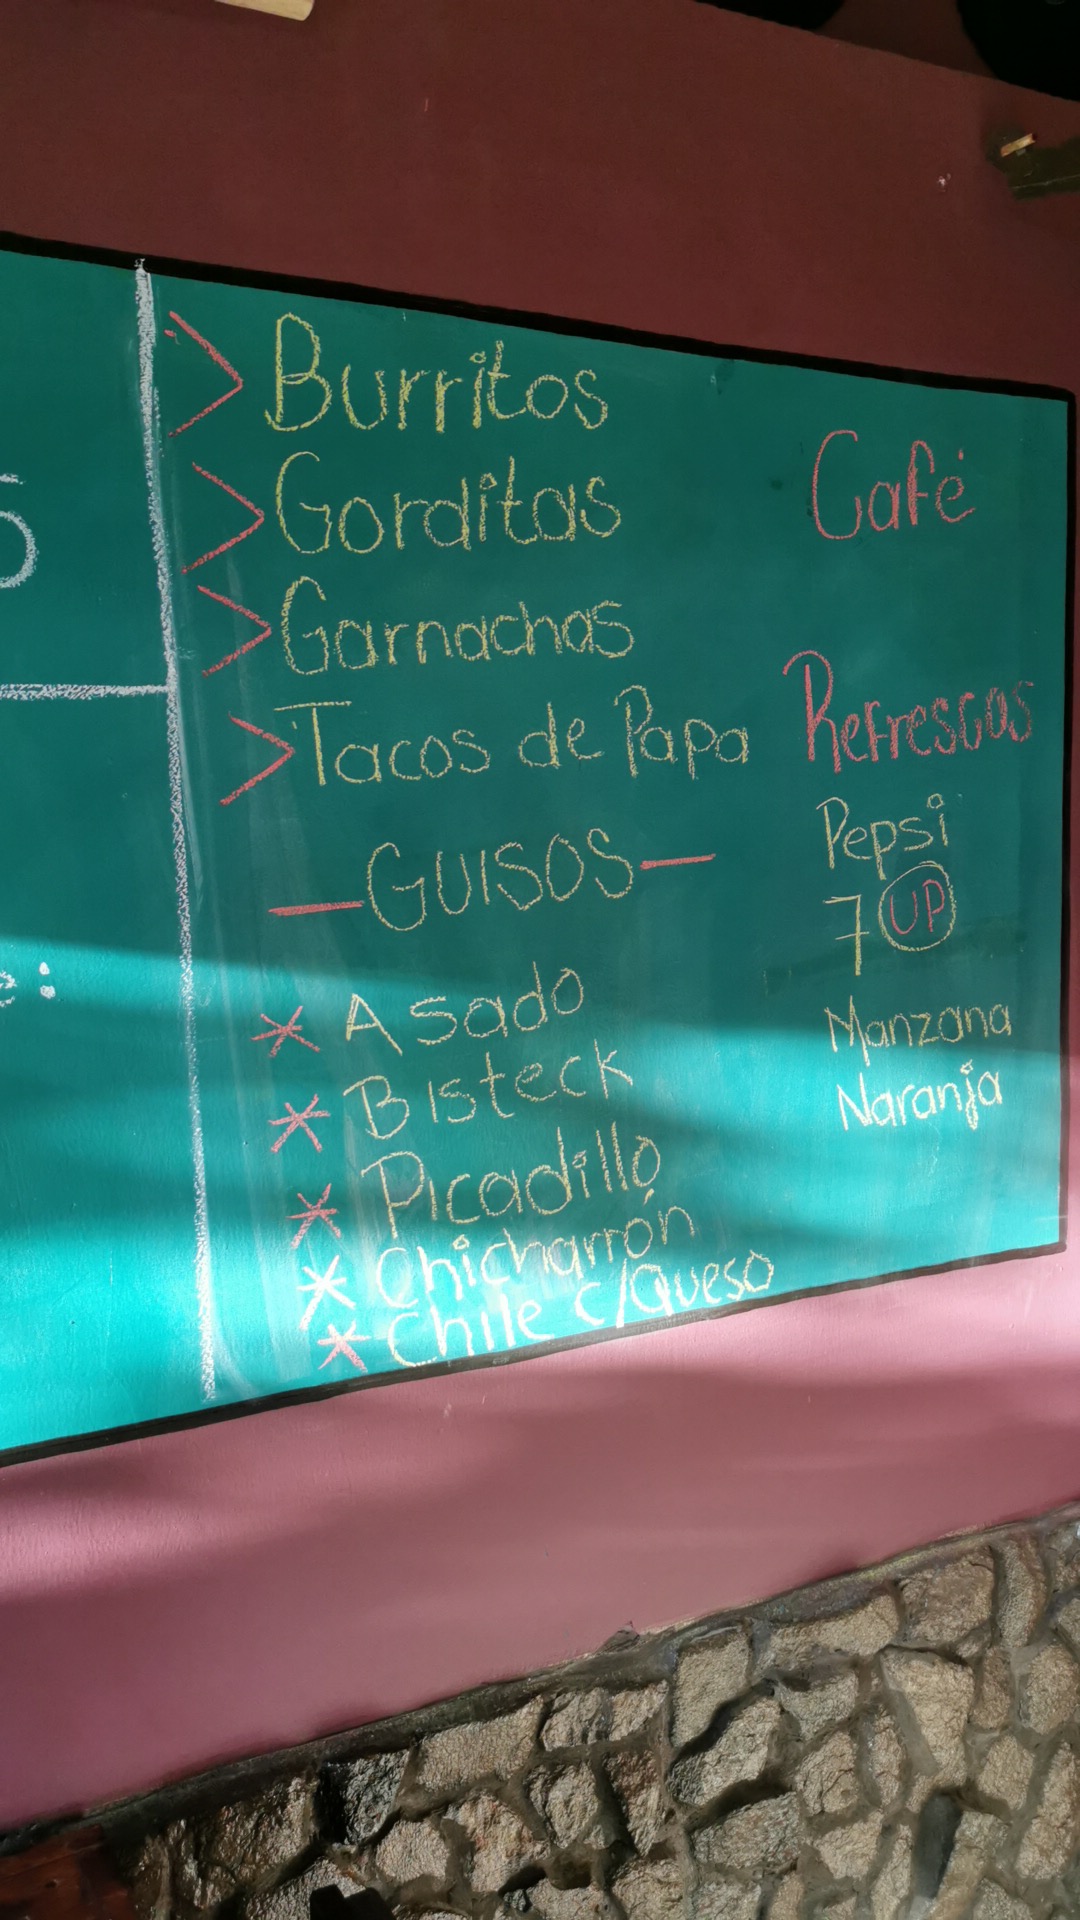 Burritos
Gorditas
Garnachas
Tacos de Papa
GUISOS
Asado
Bisteck
Picadillo
Chicharrón
Chile c/Queso
Café
Refrescos
Pepsi
7 UP
Manzana
Naranja